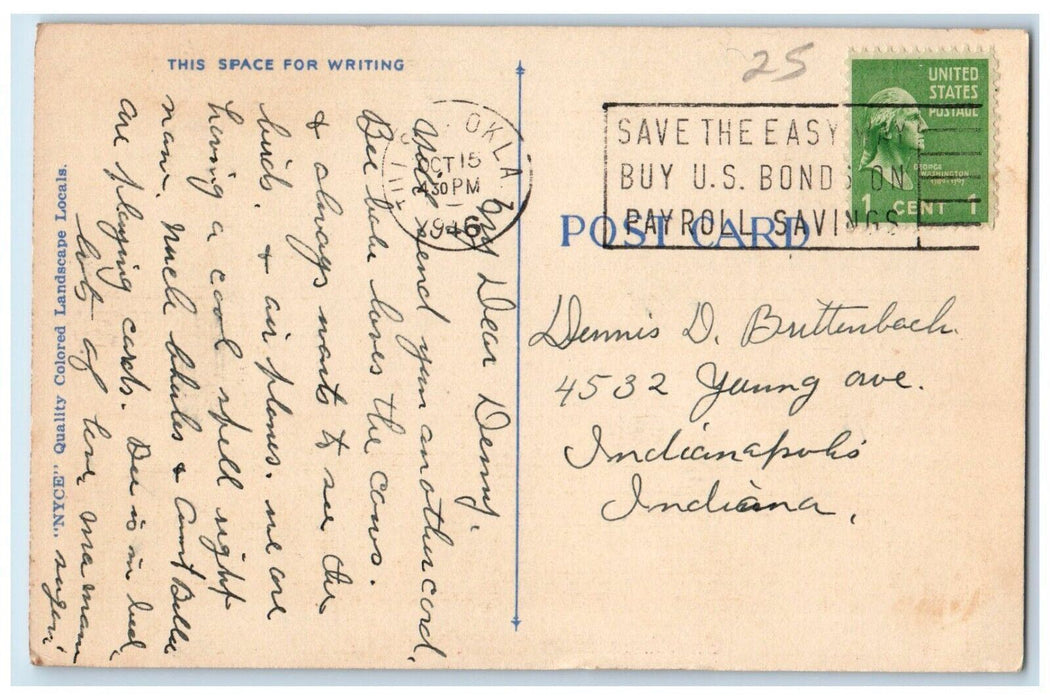 THIS SPACE FOR WRITING
My Dear Denny,
Will send you another card,
Bee loves the cows.
& always wants to see the
birds & air planes. we are
having a cool spell right
now. Uncle Charles & Aunt Belle
are playing cards. Bee is in bed,
lots of love, mamam
"NYCE" Quality Colored Landscape Locals.
OKLA.
OCT 15
430 PM
1946
25
SAVE THE EASY WAY
BUY U.S. BONDS ON
PAYROLL SAVINGS
UNITED
STATES
POSTAGE
GEORGE
WASHINGTON
1 CENT 1
POST CARD
Dennis D. Brittenback
4532 Young ave.
Indianapolis
Indiana,